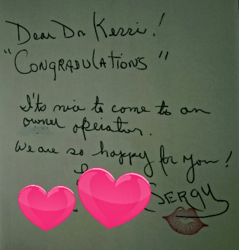 Dear Dr Kerri!
"CONGRADULATIONS"
It's nice to come to an
owner operator.
We are so happy for you!
SERGY